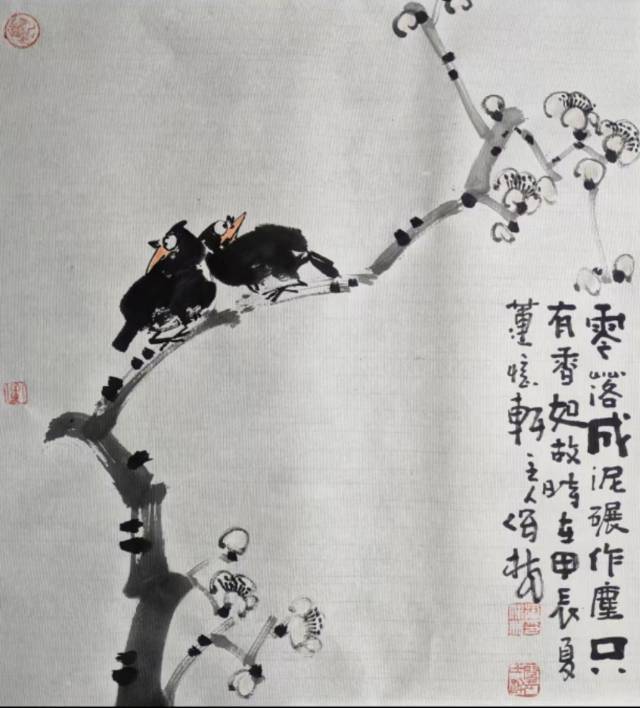 零落成泥碾作塵只
有香如故時在甲辰夏
憶軒主人